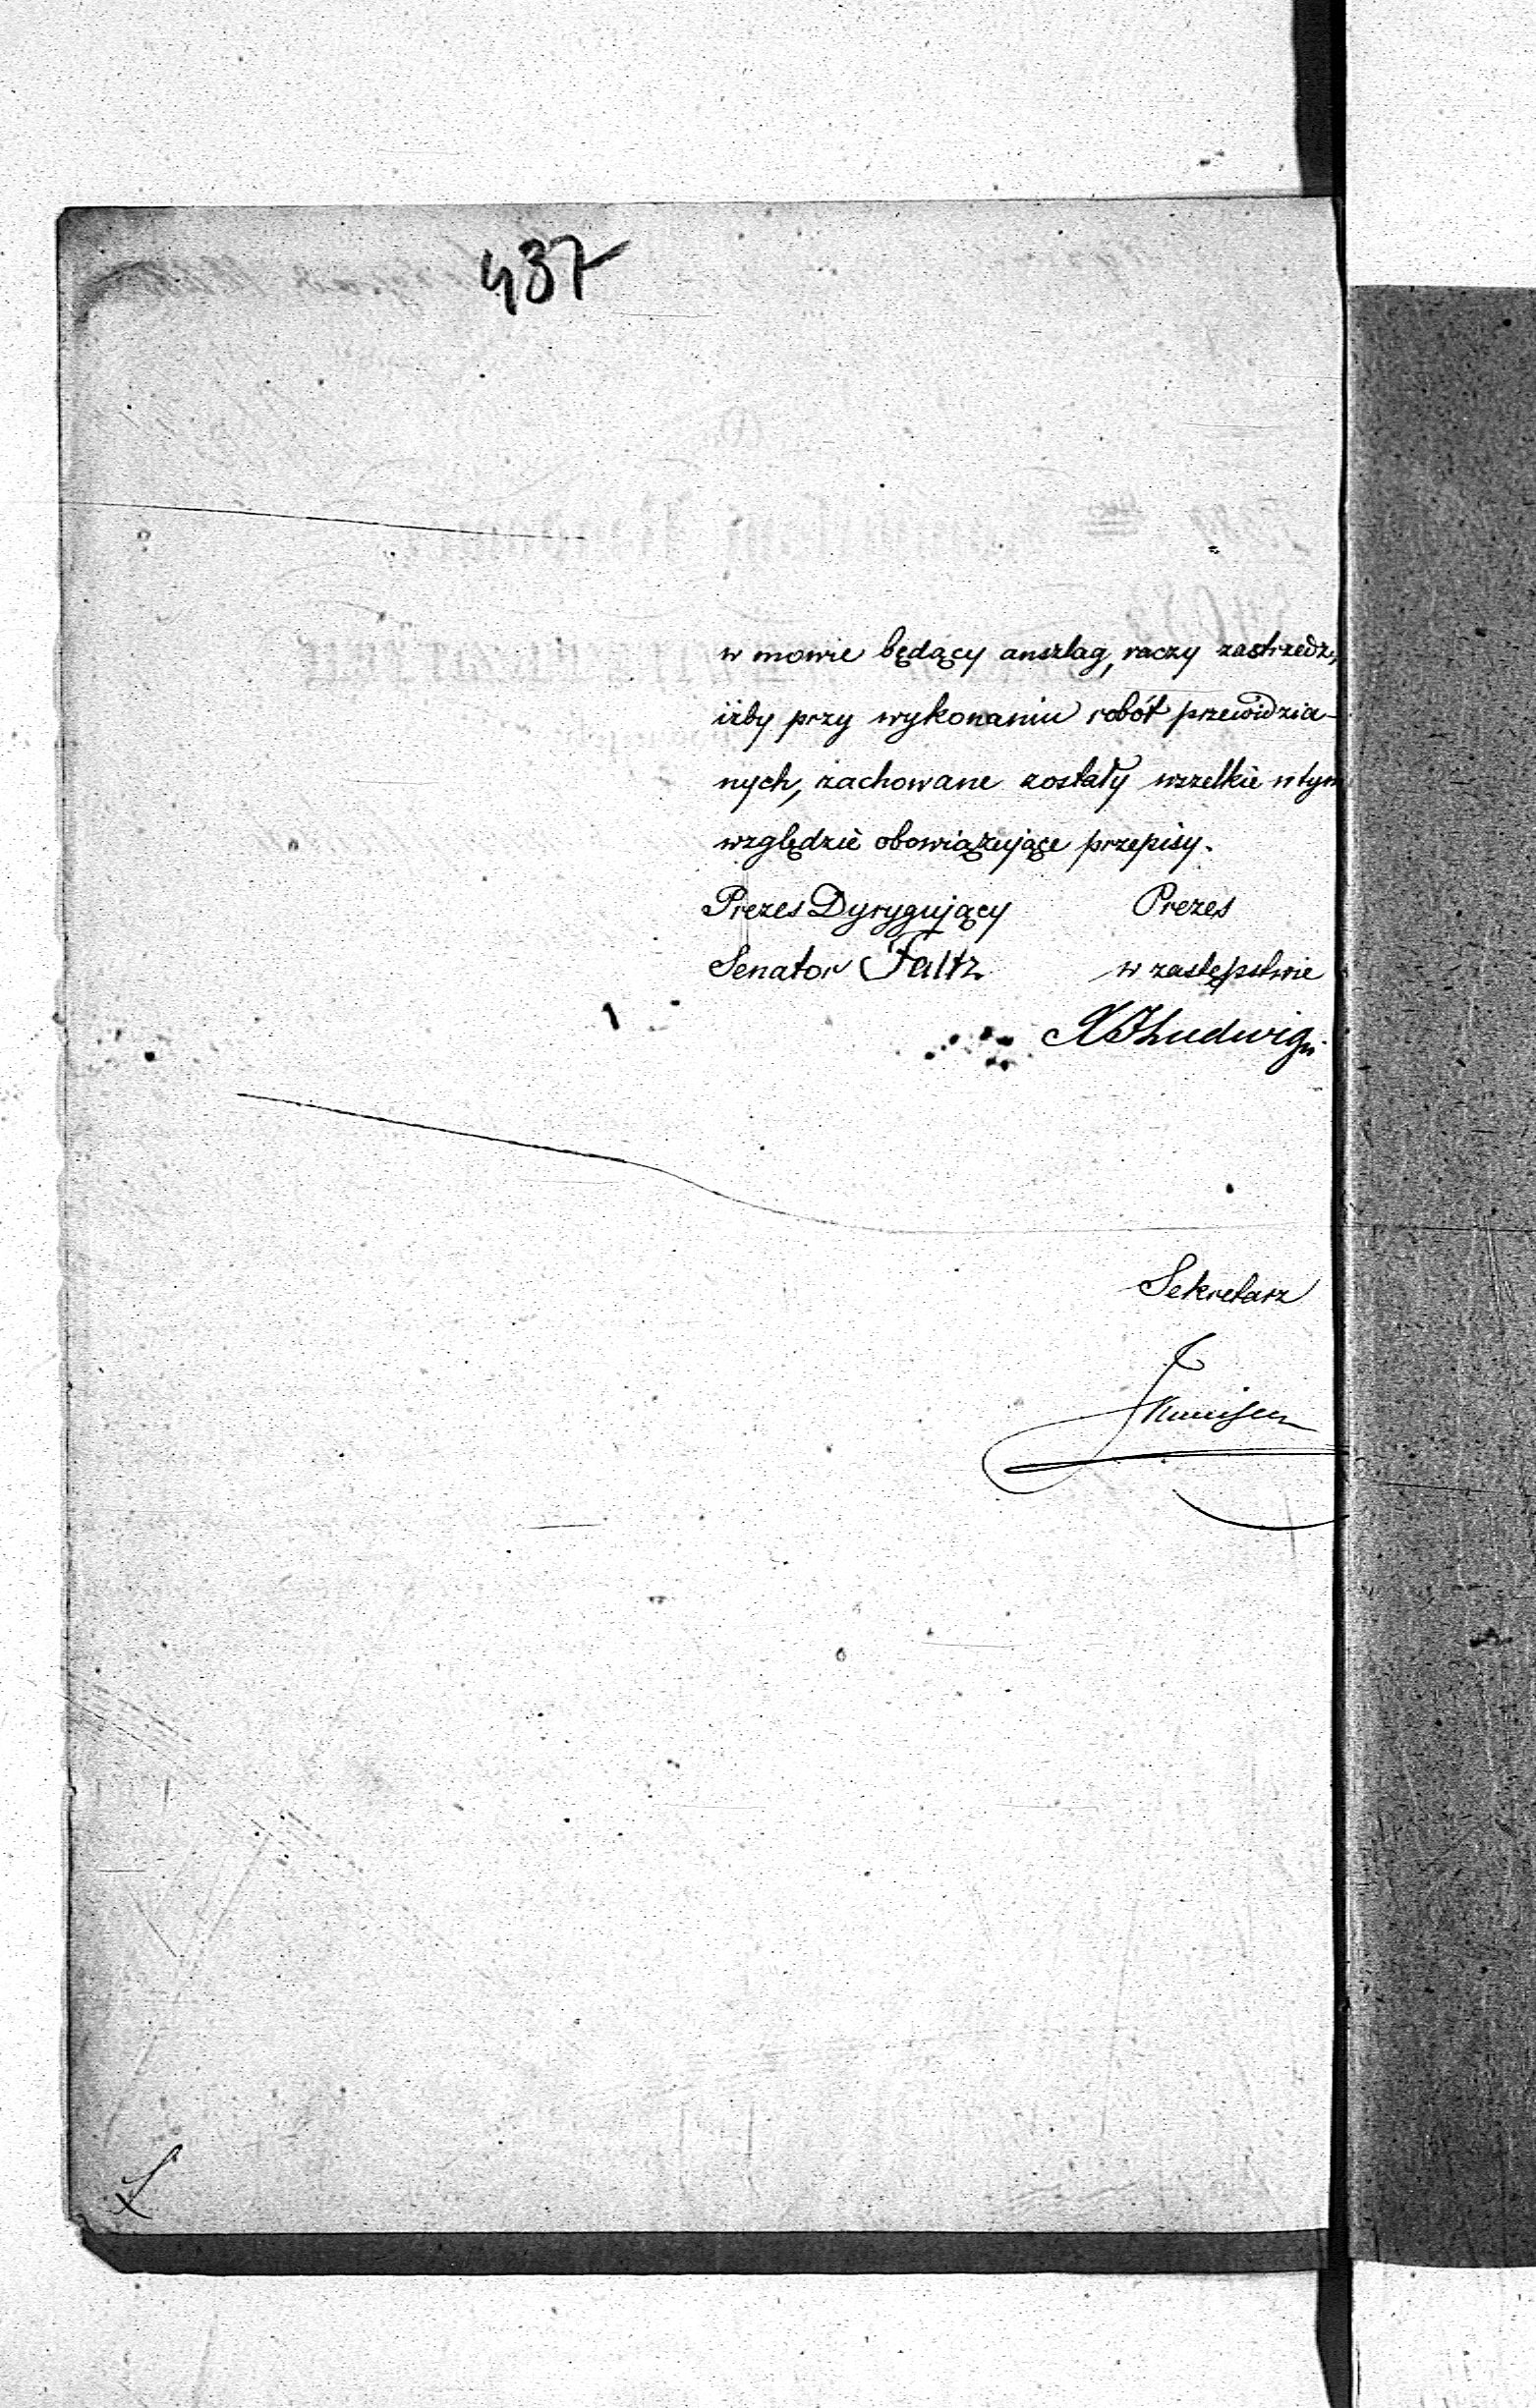 437
w mowie będący anszlag, raczy zastrzedz,
iżby przy wykonaniu robót przewidzia-
nych, zachowane zostały wszelkie w tym
względzie obowiązujące przepisy.
Prezes Dyrygujący Prezes
Senator Faltz w zastępstwie
Ludwig
Sekretarz